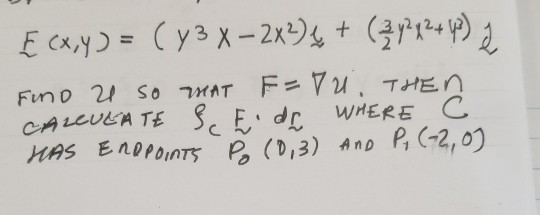 F(x,y) = (y³x - 2x²)i + (3/2 y²x² + y³) j
FIND U SO THAT F = ∇U. THEN
CALCULATE ∫c F · dr WHERE C
HAS ENDPOINTS P₀ (0,3) AND P₁ (-2,0)